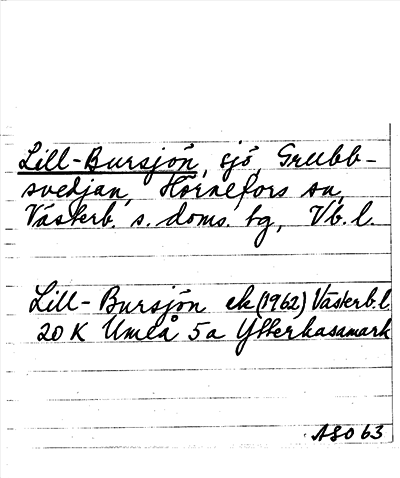 Lill-Bursjön, sjö, Grubb-
svedjan, Hörnefors sn,
Västerb. s. doms. tg, Vb. l.
Lill-Bursjön ek (1962) Västerb. l.
20 K Umeå 5a Ytterkasamark
ASO 63